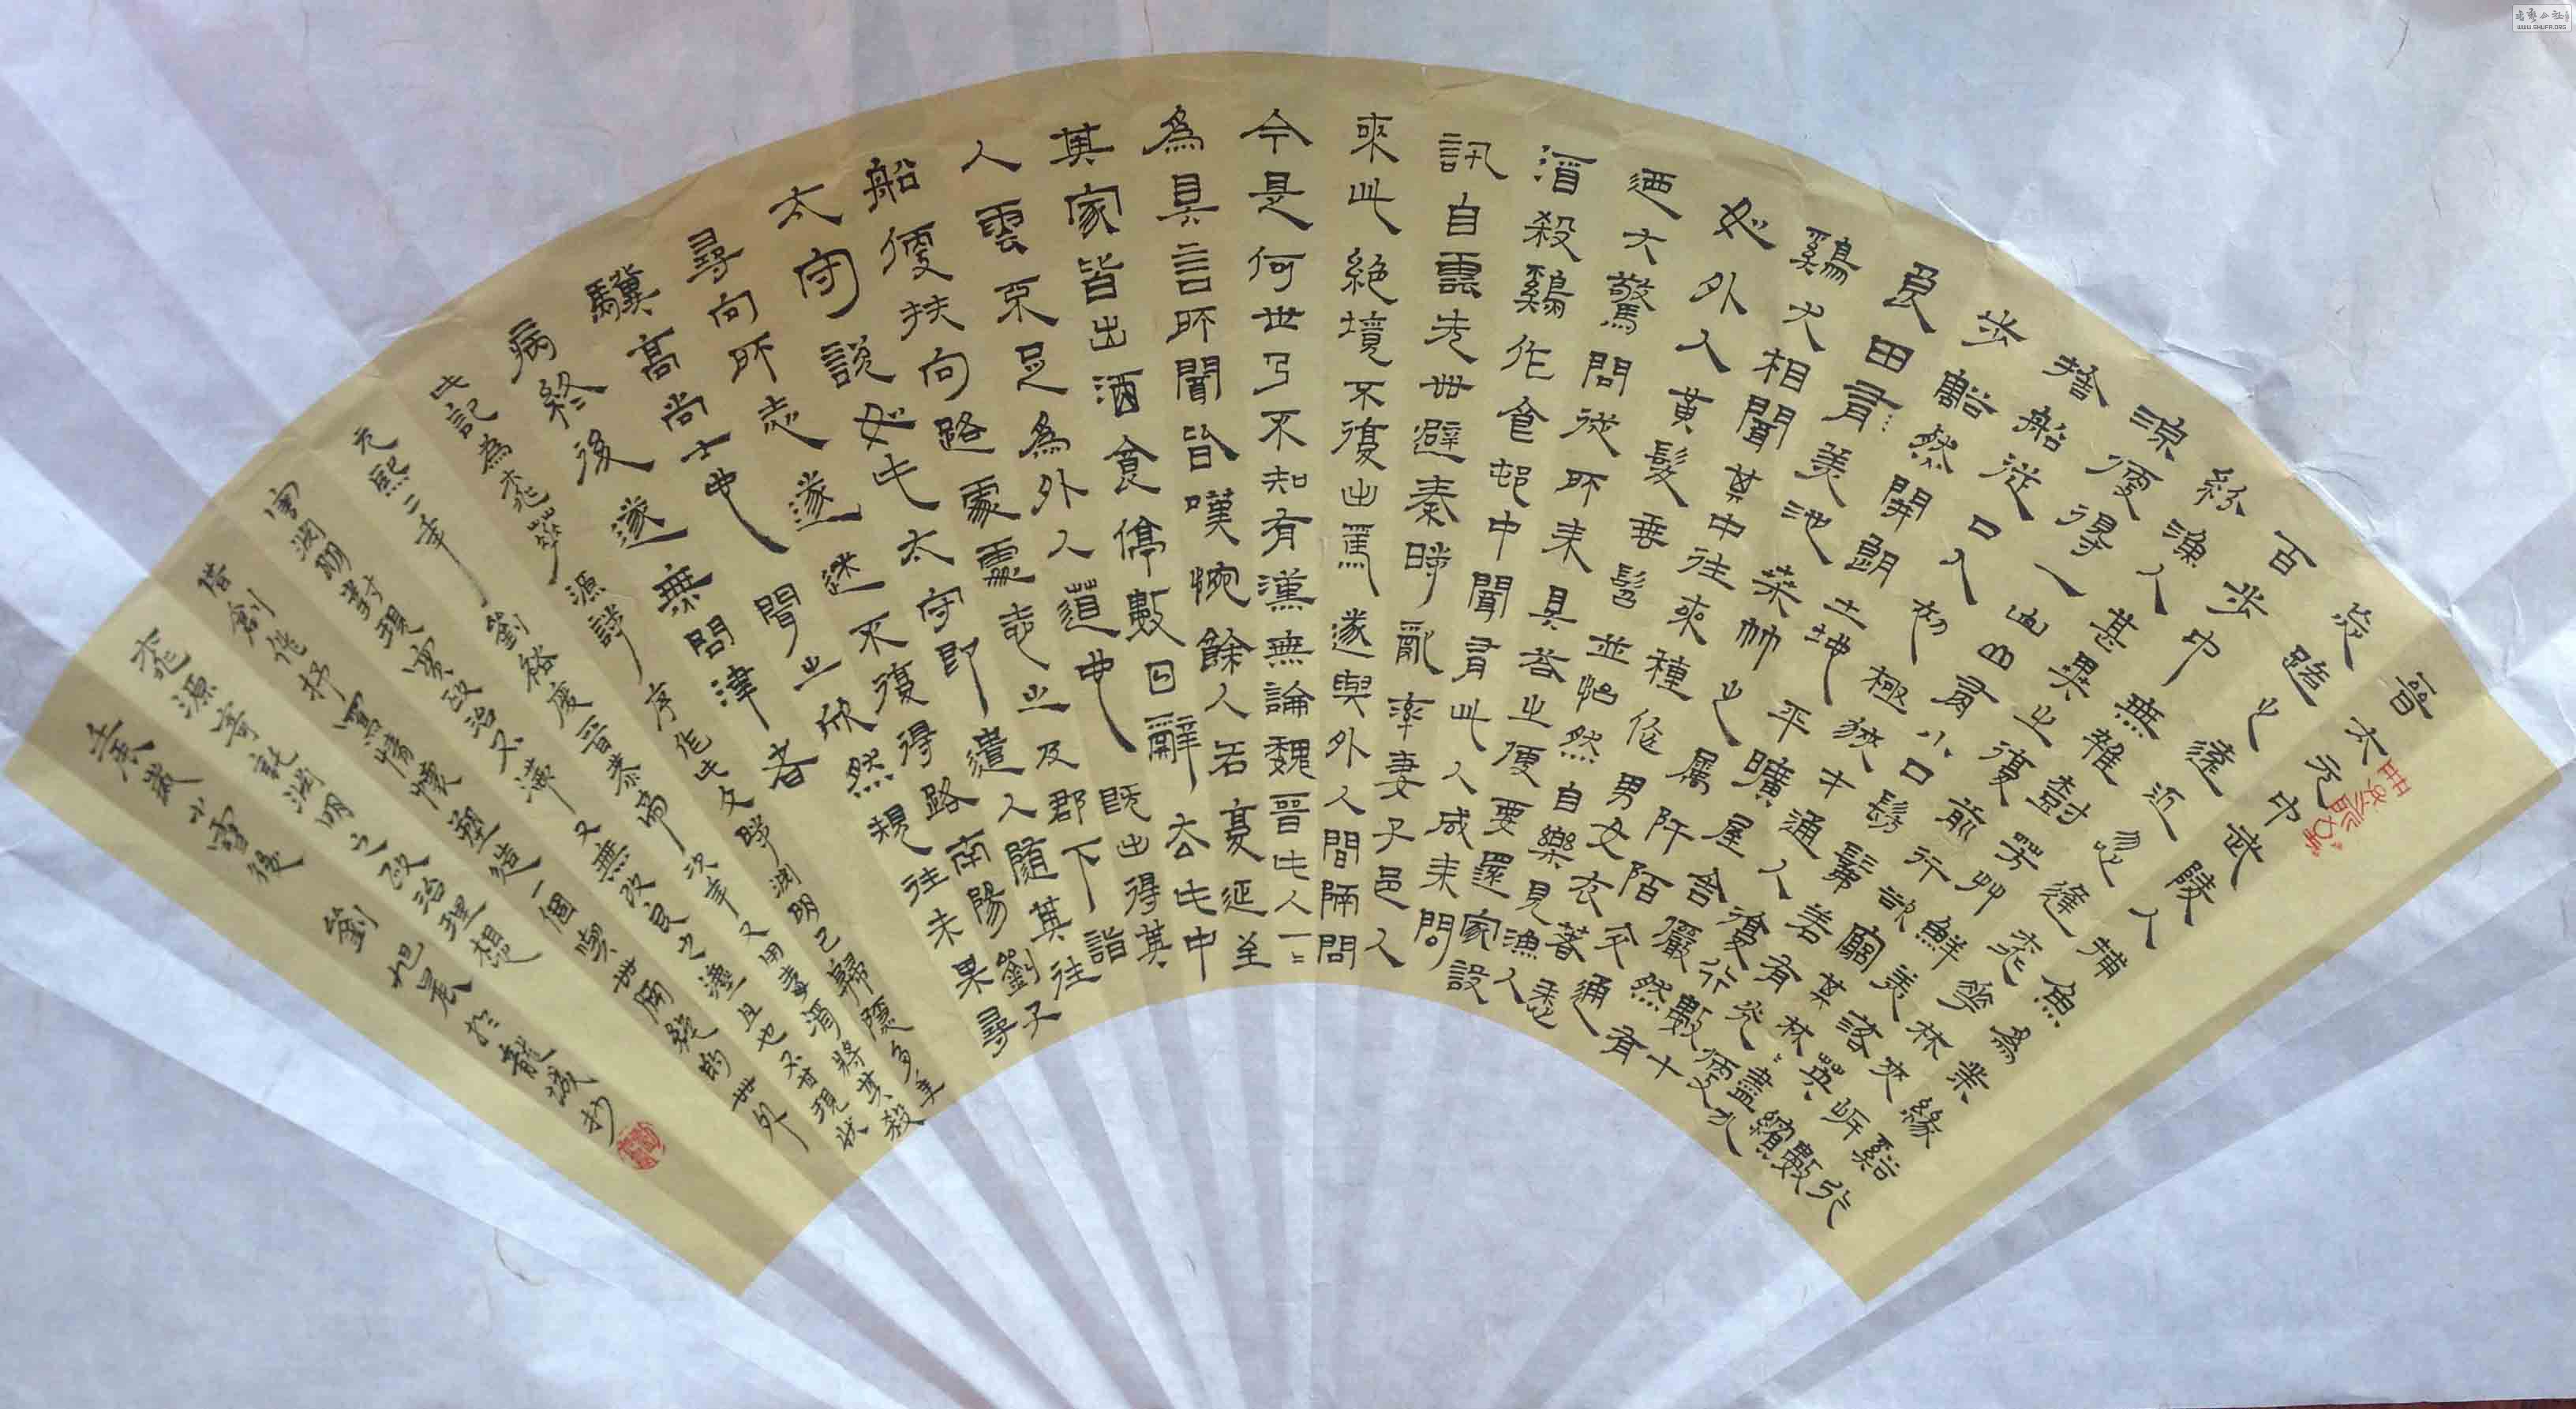 晉太元中武陵人捕魚為業緣谿行
忘路之遠近忽逢桃華林夾岸數
百步中無雜樹芳艸鮮美落英繽
紛漁人甚異之復前行欲窮其林林盡
源便得一山山有小口髣髴若有光便
捨船從口入初極狹才通人復行數十
步豁然開朗土地平曠屋舍儼然有
良田有美池桑竹之屬阡陌交通
鷄犬相聞其中往來種作男女衣著悉
如外人黃髮垂髫並怡然自樂見漁人
迺大驚問從所來具答之便要還家設
酒殺鷄作食邨中聞有此人咸來問
訊自雲先世避秦時亂率妻子邑人
來此絕境不復出焉遂與外人間隔問
今是何世乃不知有漢無論魏晉此人一一
為具言所聞皆嘆惋餘人各復延至
其家皆出酒食停數日辭去此中
人雲不足為外人道也既出得其
船便扶向路處處志之及郡下詣
太守說如此太守即遣人隨其往
尋向所志遂迷不復得路南陽劉子
驥高尚士也聞之欣然規往未果尋
病終後遂無問津者
此記為桃花源詩序作此文時淵明已歸隱多年
元熙二年劉裕廢晉恭帝次年又用毒酒將其殺
害淵明對現實政治不滿又無改良之灋且也不肯現狀
借創作抒寫情懷塑造一個與世隔絕的世外
桃源寄託淵明之政治理想
歲小雪後劉旭晨於龍城抄
书艺公社
WWW.SHUFA.ORG